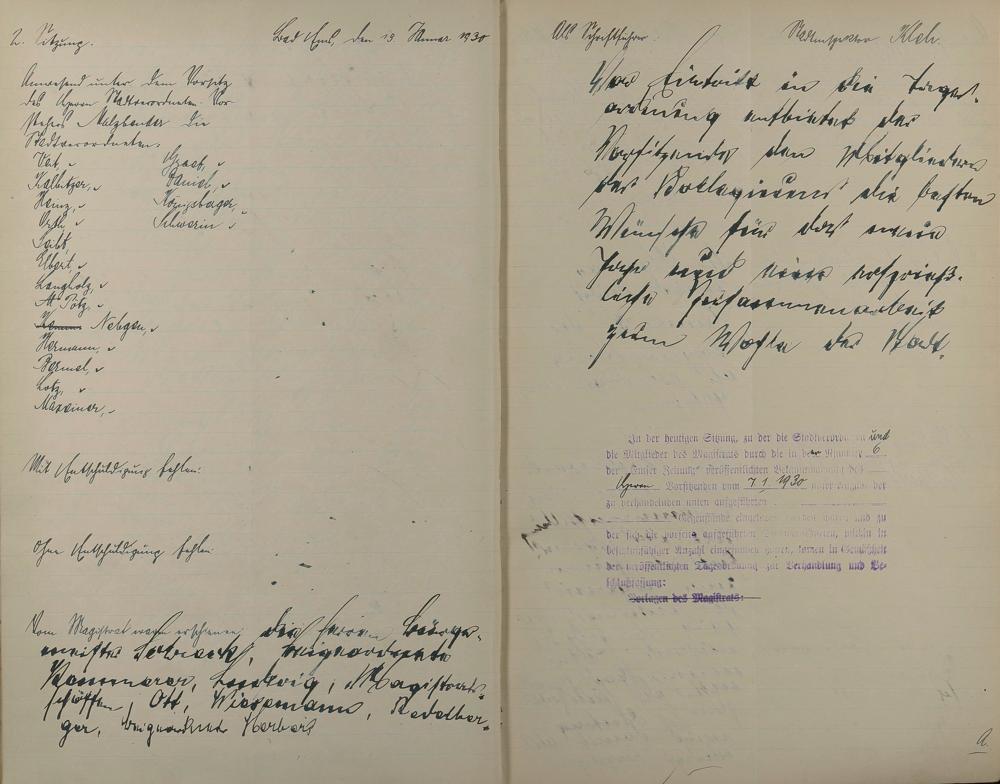 2. Sitzung.
Bad Ems, den 13. Januar 1930
Anwesend unter dem Vorsitz
des Herrn Stadtverordneten-Vor-
stehers Balzbander die
Stadtverordneten:
Veit,
Kalbitzer,
Heinz,
Orth,
Leibl,
Elbert,
Langholz,
A. Pötz,
Nebgen,
Hermann,
Bermel,
Lotz,
Massiner,
Graef,
Daniel,
Königsberger,
Schwerin
Mit Entschuldigung fehlen:
Ohne Entschuldigung fehlen:
Vom Magistrat waren erschienen: die Herren Bürger-
meister, Beigeordnete
Kammerer, Ludwig, Magistrats-
schöffen Ott, Wiesemann, Adelber-
ger, Beigeordneter Herbert
Als Schriftführer: Stadtinspektor
Vor Eintritt in die Tages-
ordnung entbietet der
Vorsitzende den Mitgliedern
des Kollegiums die besten
Wünsche für das neue
Jahr und eine ersprieß-
liche Zusammenarbeit
zum Wohle der Stadt.
In der heutigen Sitzung, zu der die Stadtverordneten und
die Mitglieder des Magistrats durch die in der Nummer 6
der Emser Zeitung veröffentlichten Bekanntmachung des
Herrn Vorsitzenden vom 7.1.1930 unter Angabe der
zu verhandelnden unten aufgeführten
Gegenstände eingeladen worden waren und zu
der sich die vorseits aufgeführten Stadtverordneten, mithin in
beschlußfähiger Anzahl eingefunden hatten, kamen in Gemäßheit
der veröffentlichten Tagesordnung zur Verhandlung und Be-
schlußfassung:
Vorlagen des Magistrats: